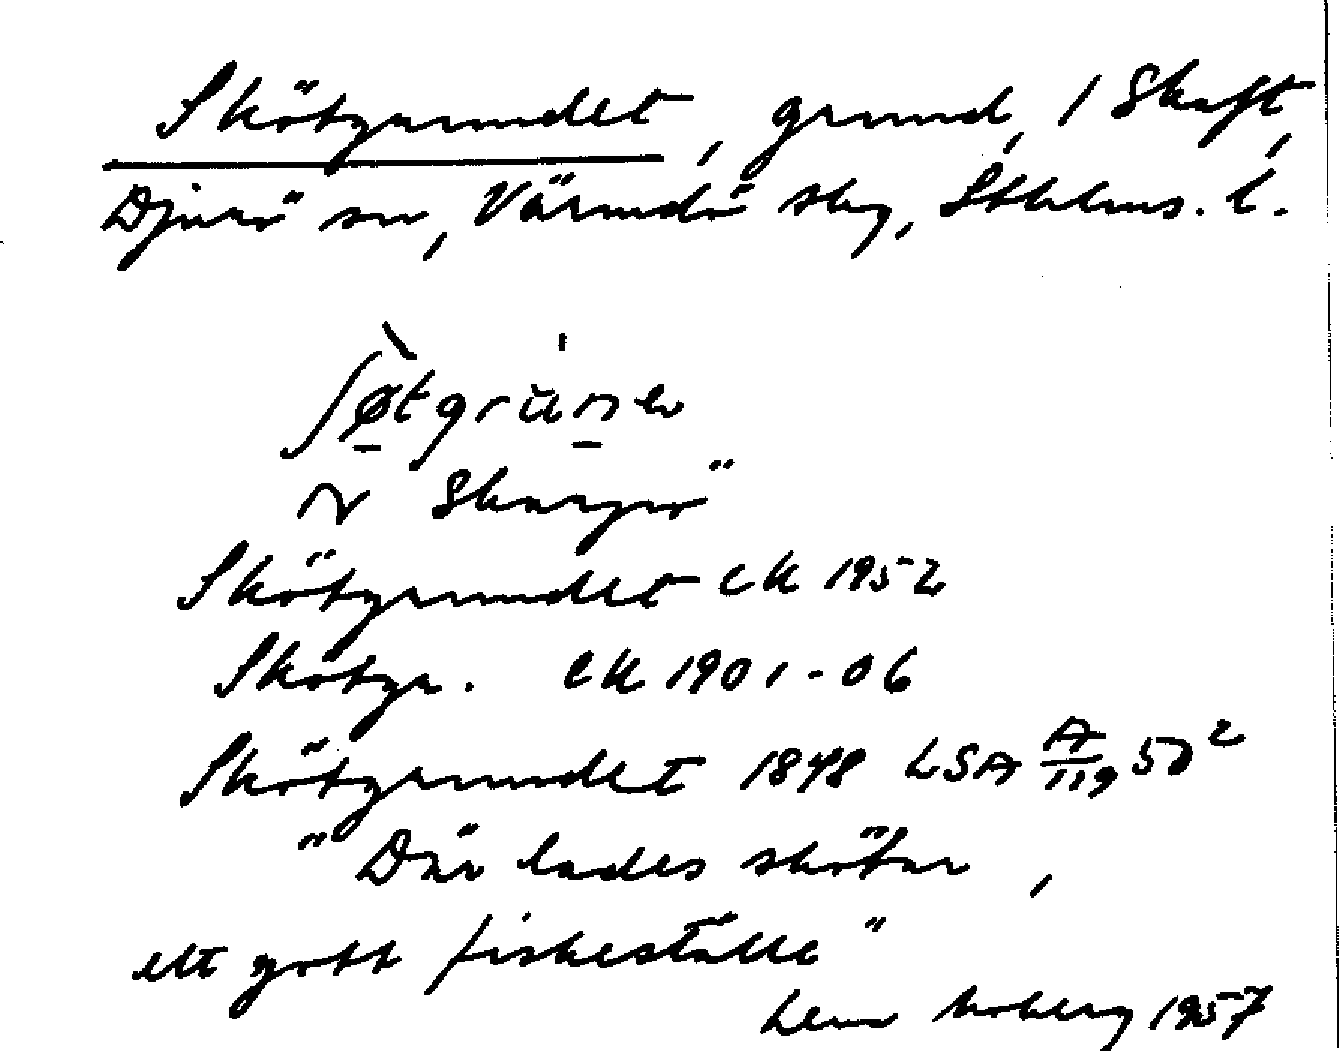 Skötgrundet, grund, / Skaft,
Djurö sn, Värmdö skg, Sthlms. l.
ʃø̱tgruṉ
Skötgrundet EK 1952
Skötgr. EK 1901-06
Skötgrundet 1848 LSA A/119 50²
"Där lades skötar,
ett gott fiskeställe"
Lena Moberg 1957